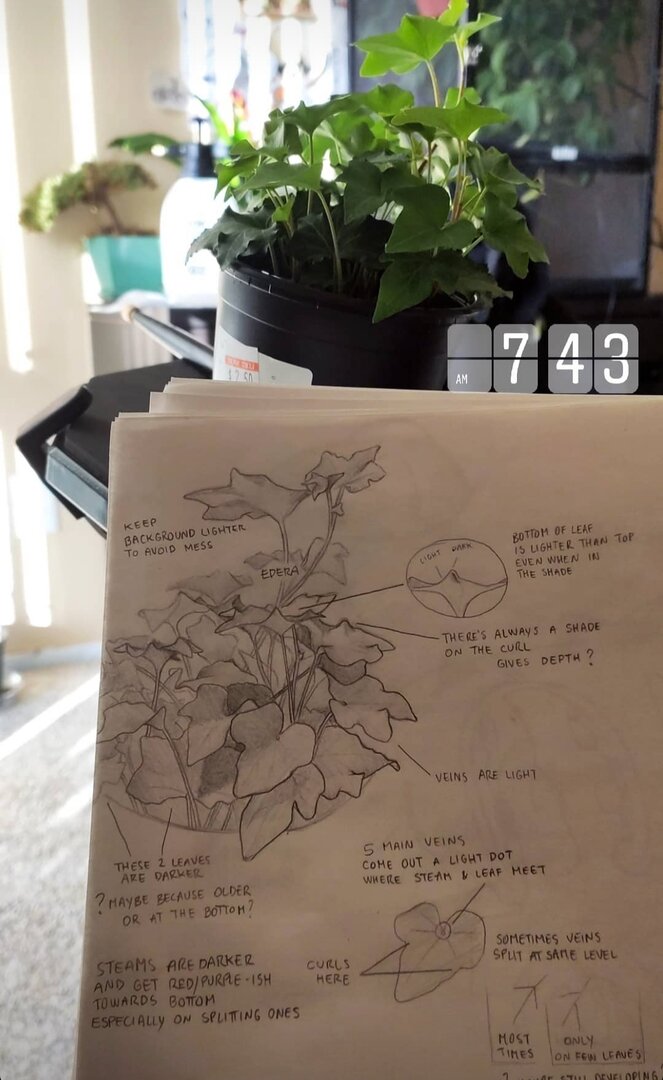 AM 7 43
$2.50
KEEP
BACKGROUND LIGHTER
TO AVOID MESS
EDERA
LIGHT DARK
BOTTOM OF LEAF
IS LIGHTER THAN TOP
EVEN WHEN IN
THE SHADE
THERE'S ALWAYS A SHADE
ON THE CURL
GIVES DEPTH?
VEINS ARE LIGHT
THESE 2 LEAVES
ARE DARKER
? MAYBE BECAUSE OLDER
OR AT THE BOTTOM?
5 MAIN VEINS
COME OUT A LIGHT DOT
WHERE STEAM & LEAF MEET
CURLS
HERE
SOMETIMES VEINS
SPLIT AT SAME LEVEL
STEAMS ARE DARKER
AND GET RED/PURPLE-ISH
TOWARDS BOTTOM
ESPECIALLY ON SPLITTING ONES
MOST
TIMES
ONLY
ON FEW LEAVES
STILL DEVELOPING